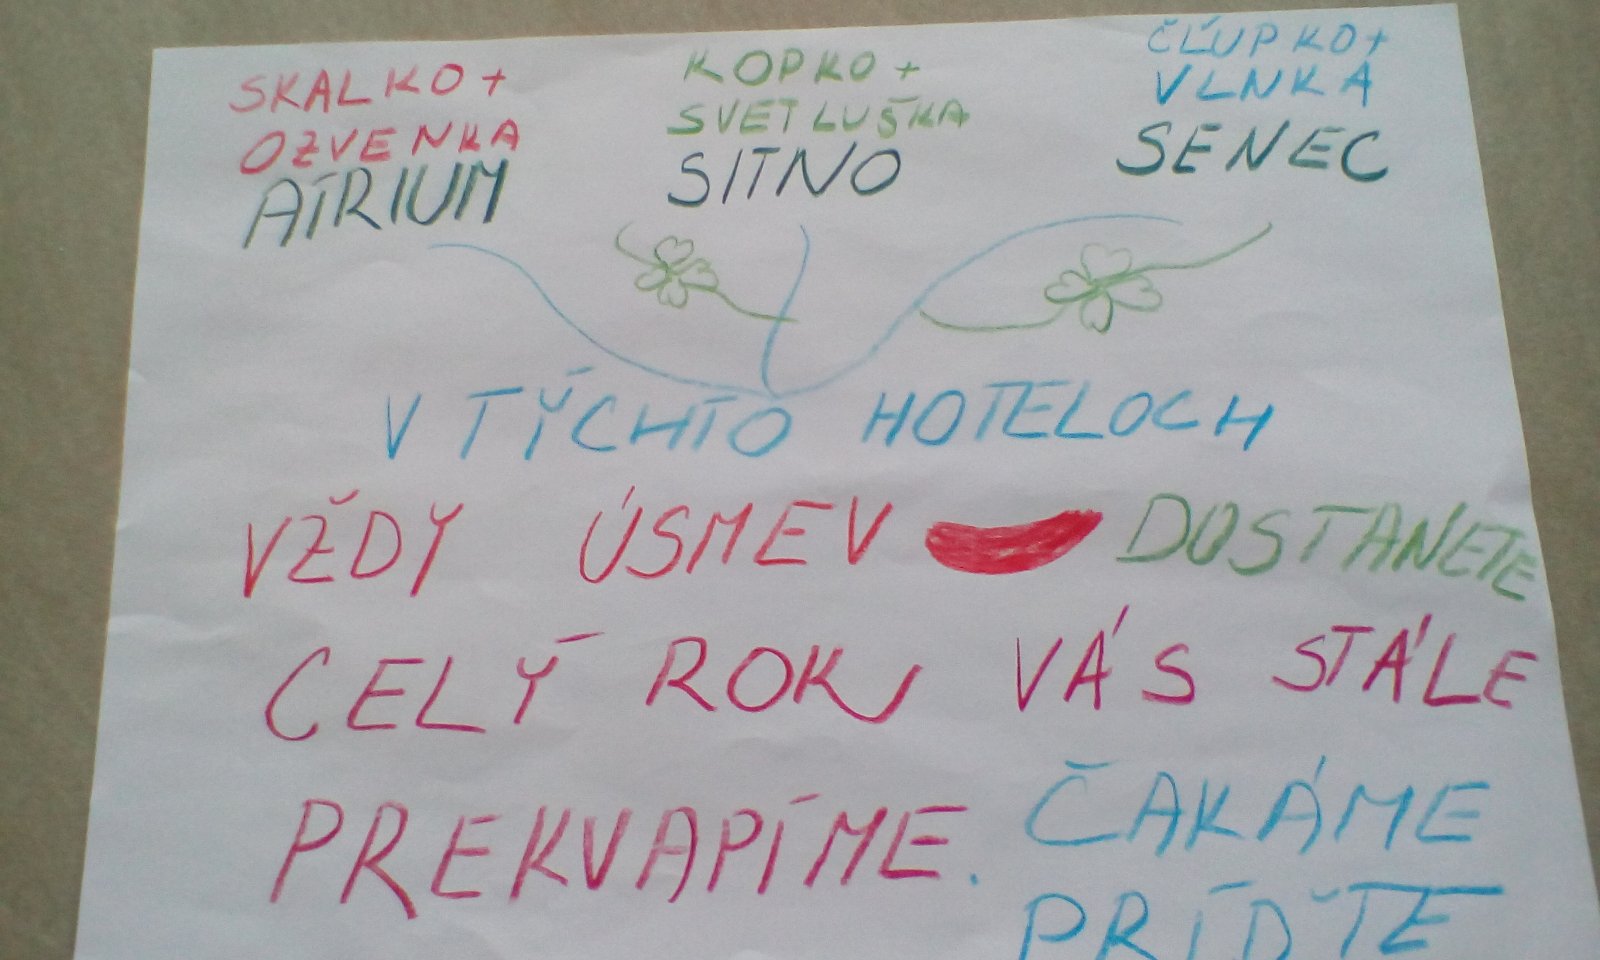 SKALKO +
OZVENKA
ATRIUM
KOPKO +
SVETLUŠKA
SITNO
ČĽUPKO +
VLNKA
SENEC
V TÝCHTO HOTELOCH
VŽDY ÚSMEV DOSTANETE
CELÝ ROK VÁS STÁLE
PREKVAPÍME.
ČAKÁME
PRÍĎTE